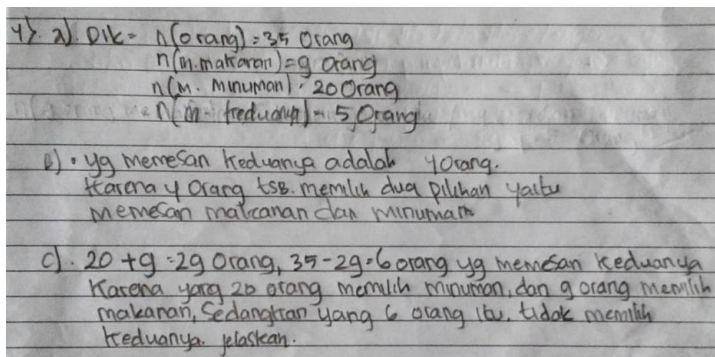 4) a). Dik = n(orang) = 35 Orang
n(m.makanan) = 9 orang
n(m. minuman) = 20 Orang
n(m. keduanya) = 5 Orang
B) • yg memesan keduanya adalah 4 orang.
Karena 4 Orang tsb. memilih dua pilihan yaitu
memesan makanan dan minuman
c). 20 + 9 = 29 Orang, 35 - 29 = 6 orang yg memesan keduanya
Karena yang 20 orang memilih minuman, dan 9 orang memilih
makanan, Sedangkan yang 6 orang itu, tidak memilih
keduanya. jelaskan.